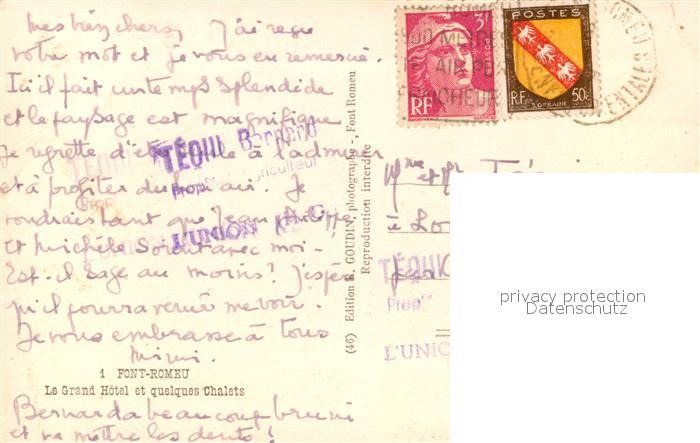 Mes bien chers, J'ai reçu
votre mot et je vous en remercie.
Ici il fait un temps splendide
et le paysage est magnifique
Je regrette d'être seule à l'admirer
et à profiter du bon air. Je
voudrais tant que Jean Philippe
et Michèle soient avec moi -
Est-il sage au moins? J'espère
qu'il pourra venir me voir.
Je vous embrasse à tous
Mimi.
1 FONT-ROMEU
Le Grand Hôtel et quelques Chalets
Bernard a beaucoup bruni
et va mettre les dents!
TÉQUI Bernard
Propre
L'UNION
(46) Edition R. GOUDIN, photographe -, Font Romeu
Reproduction interdite
3F
POSTES
RF
POSTES
R.F.
LORRAINE
50c
1900 METRES
AIR PUR
ROMEU
ORIENTALES
Mme et Mr
à
TÉQUI
Propre
L'UNION
privacy protection
Datenschutz